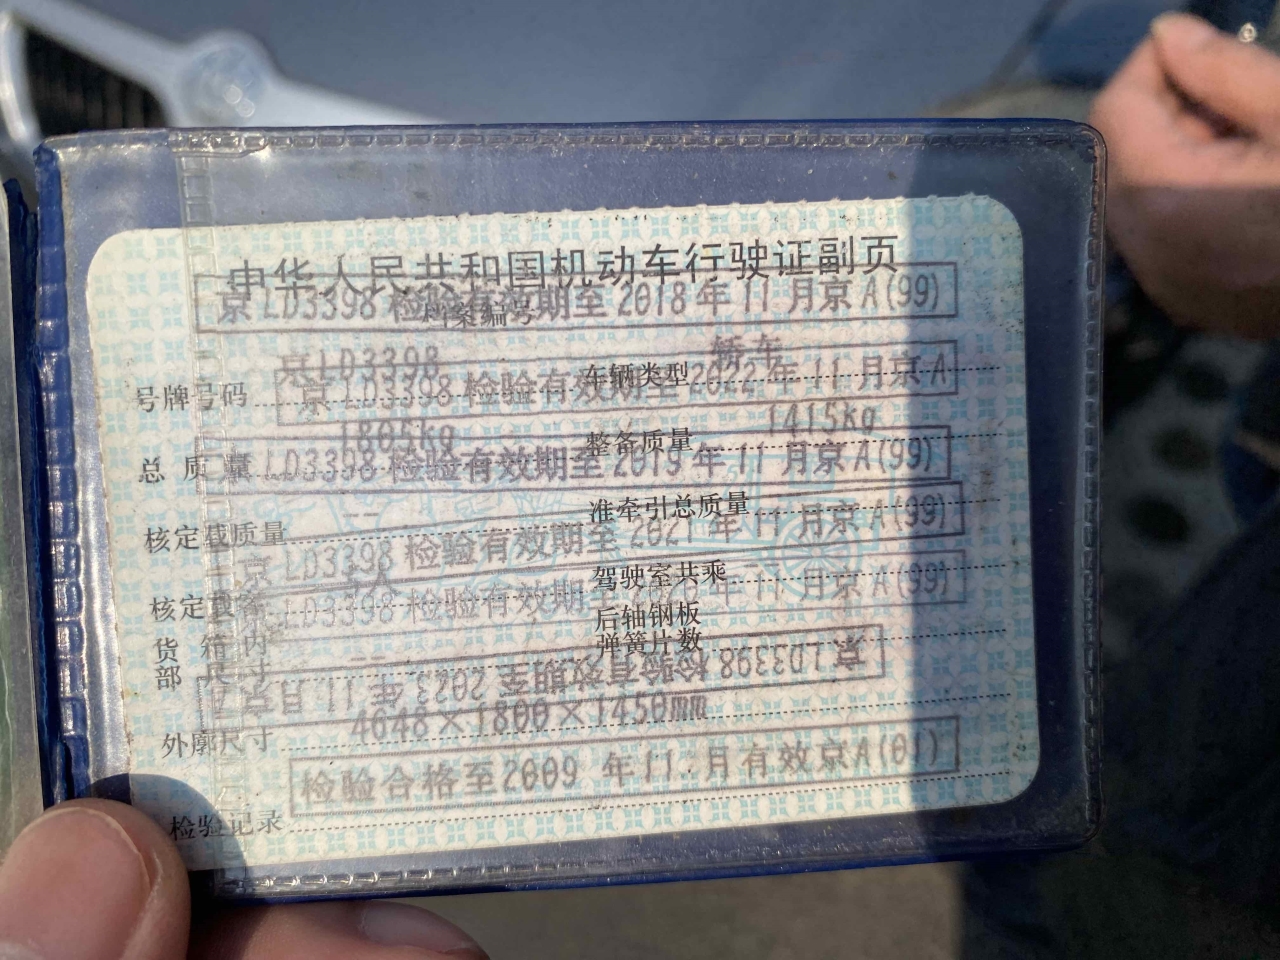 中华人民共和国机动车行驶证副页
京LD3398 检验有效期至 2018 年 11 月京 A(99)
档案编号
号牌号码 京LD3398 车辆类型 轿车
京 LD3398 检验有效期至 2022 年 11 月京 A
总质量 1805kg 整备质量 1415kg
LD3398 检验有效期至 2019 年 11 月京 A(99)
核定载质量 -- 准牵引总质量
京 LD3398 检验有效期至 2021 年 11 月京 A(99)
核定载客 5人 驾驶室共乘
LD3398 检验有效期 年 11 月京 A(99)
货箱内部尺寸 -- 后轴钢板弹簧片数
京 LD3398 检验有效期至 2023 年 11 月京 A
外廓尺寸 4648×1800×1450mm
检验合格至2009 年11.月有效京A(01)
检验记录